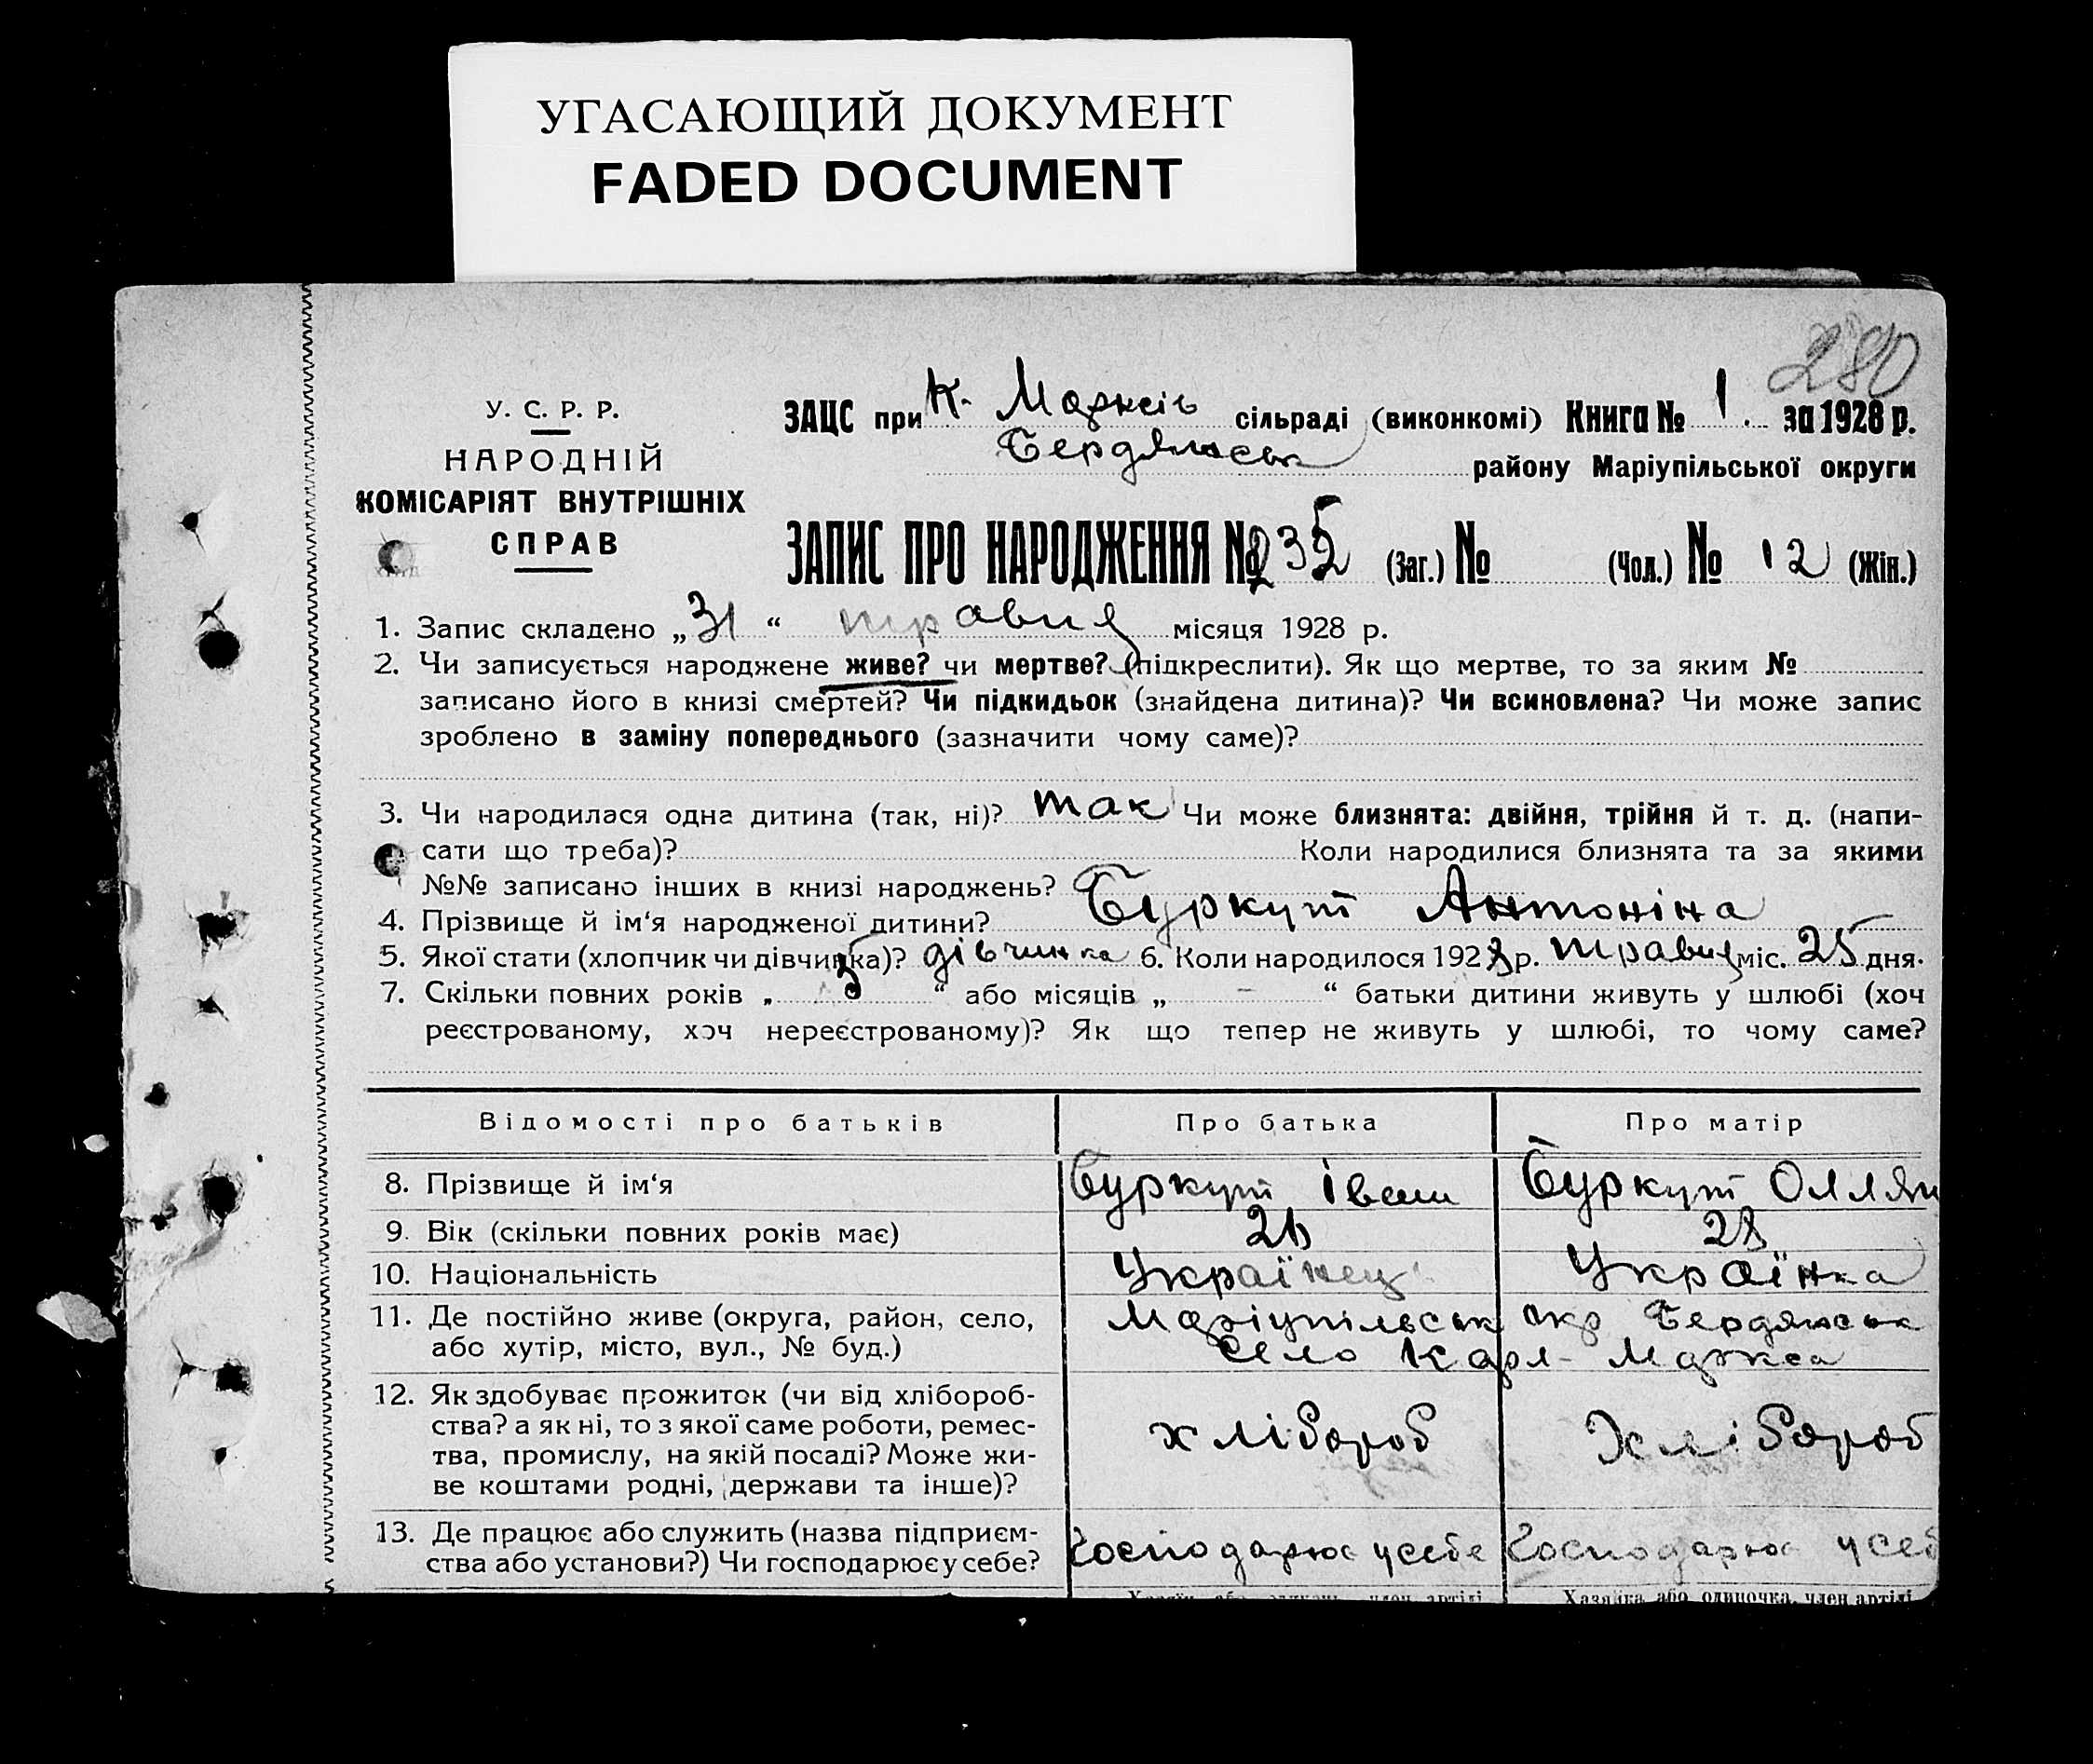 УГАСАЮЩИЙ ДОКУМЕНТ
FADED DOCUMENT
280
У. С. Р. Р.
НАРОДНІЙ
КОМІСАРІЯТ ВНУТРІШНІХ
СПРАВ
ЗАЦС при К. Марксів сільраді (виконкомі) Книга № 1. за 1928 р.
Бердянськ району Маріупільської округи
ЗАПИС ПРО НАРОДЖЕННЯ № 235 (Заг.) № (Чол.) № 12 (Жін.)
1. Запис складено „31“ травня місяця 1928 р.
2. Чи записується народжене живе? чи мертве? (підкреслити). Як що мертве, то за яким №
записано його в книзі смертей? Чи підкидьок (знайдена дитина)? Чи всиновлена? Чи може запис
зроблено в заміну попереднього (зазначити чому саме)?
3. Чи народилася одна дитина (так, ні)? так Чи може близнята: двійня, трійня й т. д. (напи-
сати що треба)? Коли народилися близнята та за якими
№№ записано інших в книзі народжень?
4. Прізвище й ім‘я народженої дитини? Буркут Антоніна
5. Якої стати (хлопчик чи дівчинка)? дівчинка 6. Коли народилося 1928 р. травня міс. 25 дня.
7. Скільки повних років „ 5 “ або місяців „ – “ батьки дитини живуть у шлюбі (хоч
реєстрованому, хоч нереєстрованому)? Як що тепер не живуть у шлюбі, то чому саме?
Відомості про батьків Про батька Про матір
8. Прізвище й ім‘я Буркут Іван Буркут Оллян
9. Вік (скільки повних років має) 28
10. Національність Українець Українка
11. Де постійно живе (округа, район, село, Маріупільськ окр Бердянськ
або хутір, місто, вул., № буд.) Село Карл-Маркса
12. Як здобуває прожиток (чи від хлібороб-
ства? а як ні, то з якої саме роботи, ремес- хлібороб Хлібороб
тва, промислу, на якій посаді? Може жи-
ве коштами родні, держави та інше)?
13. Де працює або служить (назва підприєм- Господарює у себе Господарює у себ
ства або установи?) Чи господарює у себе?
Хазяїн або одинокий, член артілі Хазяїка або одиночка, член артілі